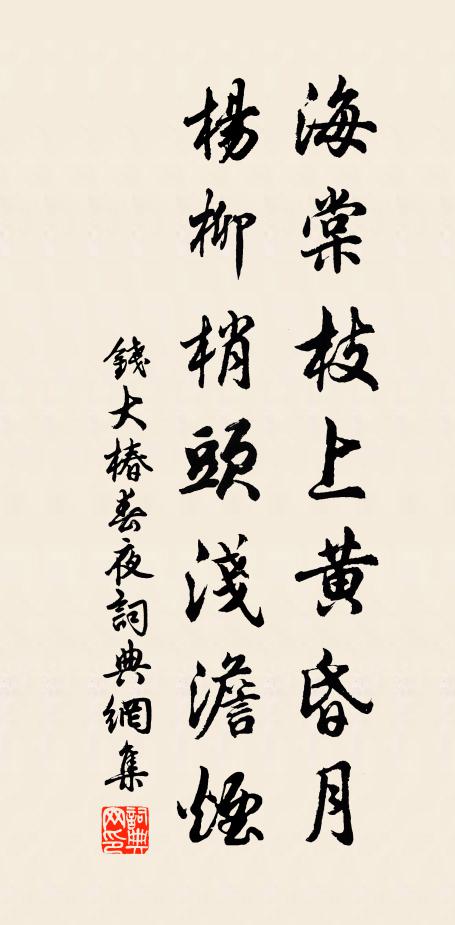 海棠枝上黄昏月
楊柳梢頭淺澹煙
錢大椿春夜詞典網集
詞典网印